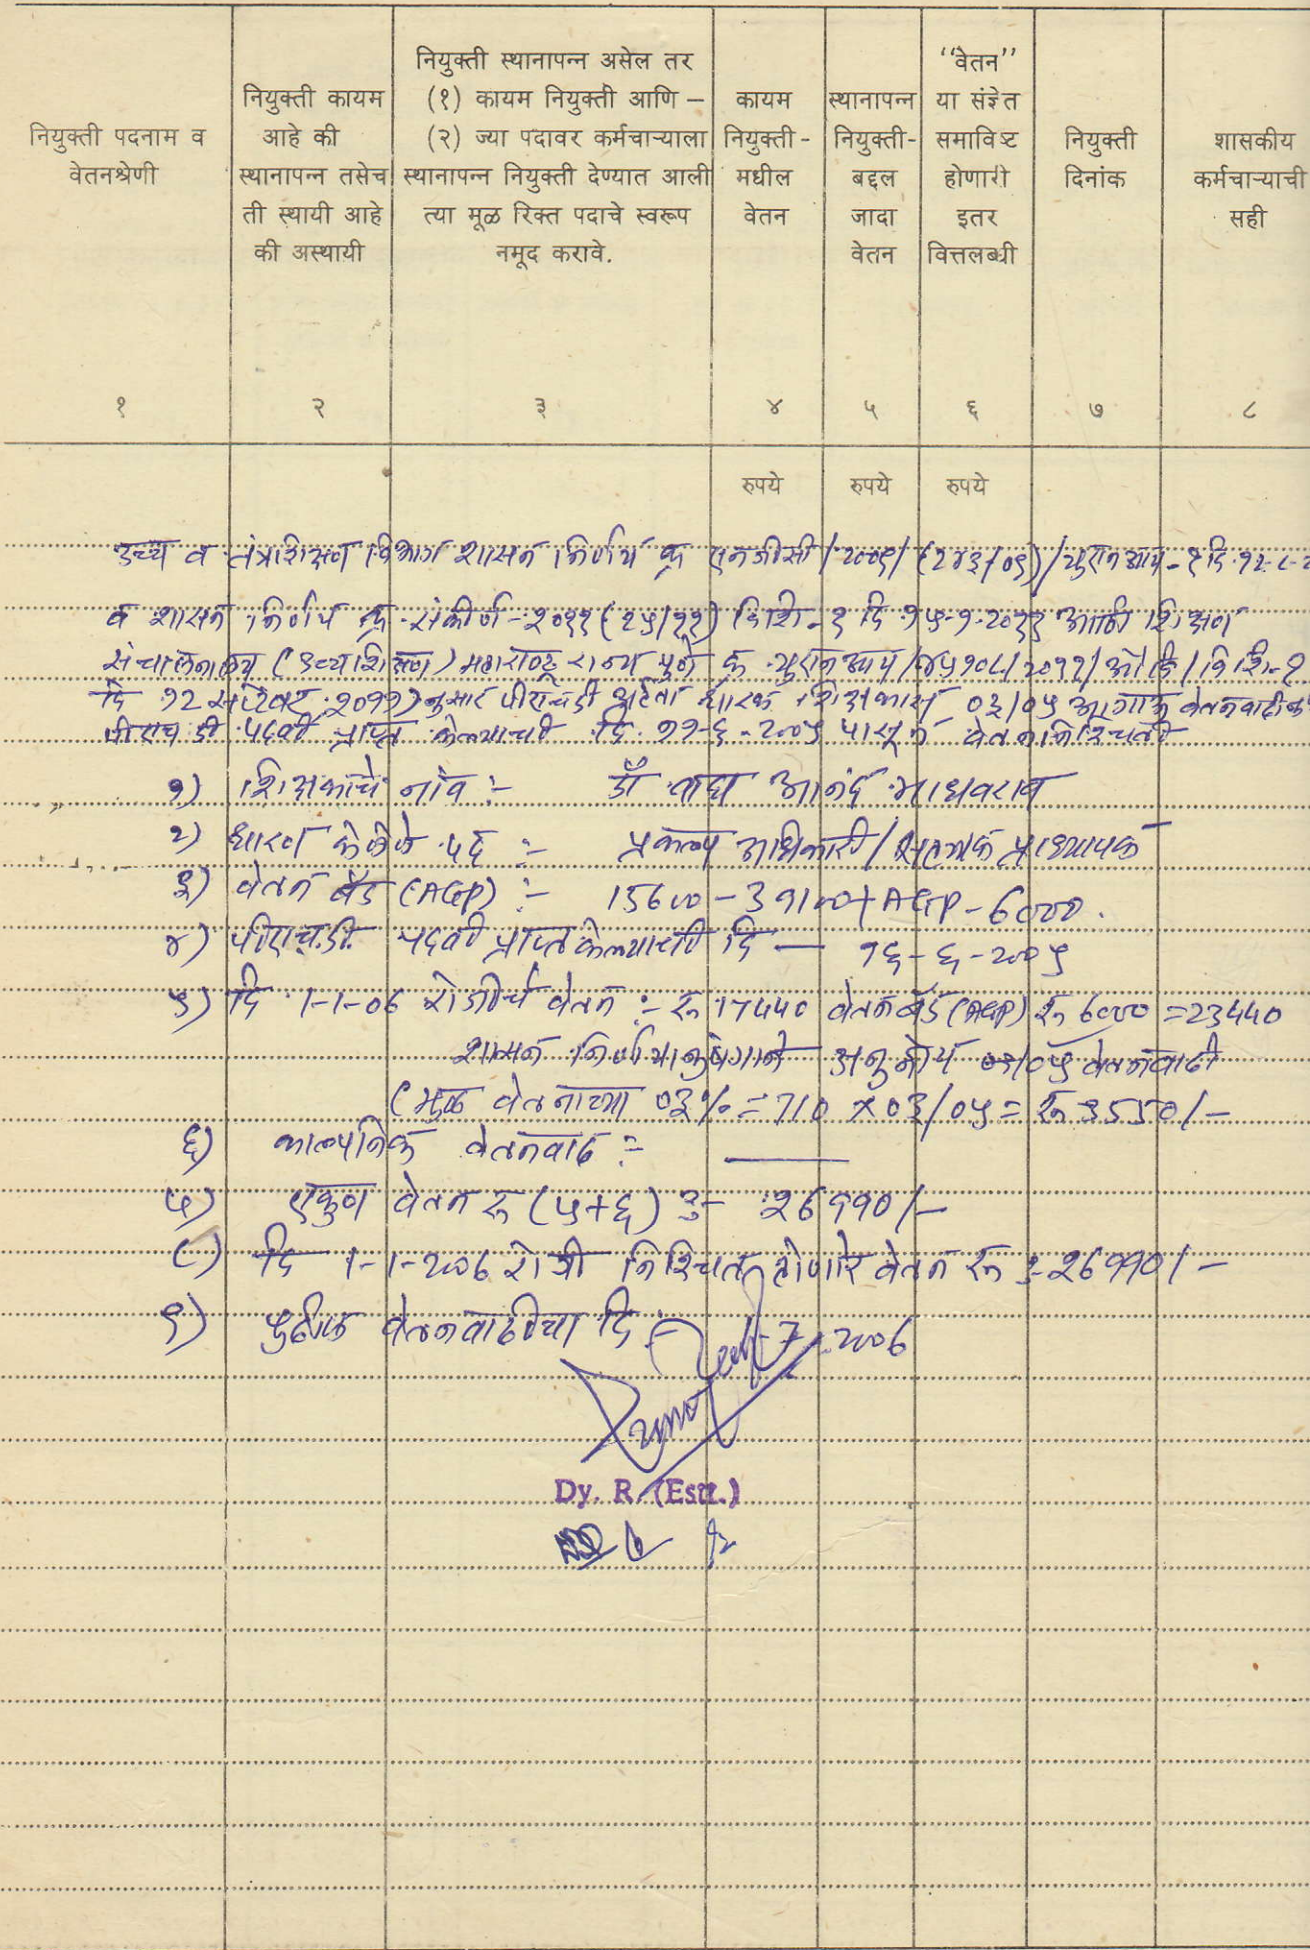 नियुक्ती पदनाम व वेतनश्रेणी
नियुक्ती कायम आहे की स्थानापन्न तसेच ती स्थायी आहे की अस्थायी
नियुक्ती स्थानापन्न असेल तर (१) कायम नियुक्ती आणि – (२) ज्या पदावर कर्मचाऱ्याला स्थानापन्न नियुक्ती देण्यात आली त्या मूळ रिक्त पदाचे स्वरूप नमूद करावे.
कायम नियुक्ती-मधील वेतन
स्थानापन्न नियुक्ती-बद्दल जादा वेतन
"वेतन" या संज्ञेत समाविष्ट होणारी इतर वित्तलब्धी
नियुक्ती दिनांक
शासकीय कर्मचाऱ्याची सही
१ २ ३ ४ ५ ६ ७ ८
रुपये रुपये रुपये
उच्च व तंत्रशिक्षण विभाग शासन निर्णय क्र एनजीसी/२००९/(२४३/०९)/युएनआय-१ दि.१२-८-
व शासन निर्णय क्र.संकीर्ण-२०११(१५/११) विशि-१ दि.१५-१-२०११ आणि शिक्षण
संचालनालय (उच्चशिक्षण) महाराष्ट्र राज्य पुणे क्र. /२०११/ /विशि-१
दि १२ सप्टेंबर २०११) नुसार पीएचडी अर्हता धारक शिक्षकास ०३/०५ आगाऊ वेतनवाढी
पीएच डी पदवी प्राप्त केल्याची दि. -६-२००५ पासून वेतननिश्चिती
१) शिक्षकाचे नांव :- डॉ वाघ आनंद माधवराव
२) धारण केलेले पद :- प्रकल्प अधिकारी/सहाय्यक प्राध्यापक
३) वेतन बँड (AGP) :- 15600-39100+AGP-6000.
४) पीएच.डी. पदवी प्राप्त केल्याची दि — १६-६-२००५
५) दि 1-1-06 रोजीचे वेतन :- रू 17440 वेतन बँड (AGP) रू 6000 =23440
शासन निर्णयानुषंगाने अनुज्ञेय ०३/०५ वेतनवाढी
(मुळ वेतनाच्या ०३% = 710 × ०३/०५ = रू 3550/-
६) काल्पनिक वेतनवाढ :- ———
७) एकुण वेतन रू (५+६) :- 26990/-
८) दि 1-1-2006 रोजी निश्चित होणारे वेतन रू :- 26990/-
९) पुढील वेतनवाढीचा दि :- 1-7-2006
Dy. R. (Estt.)